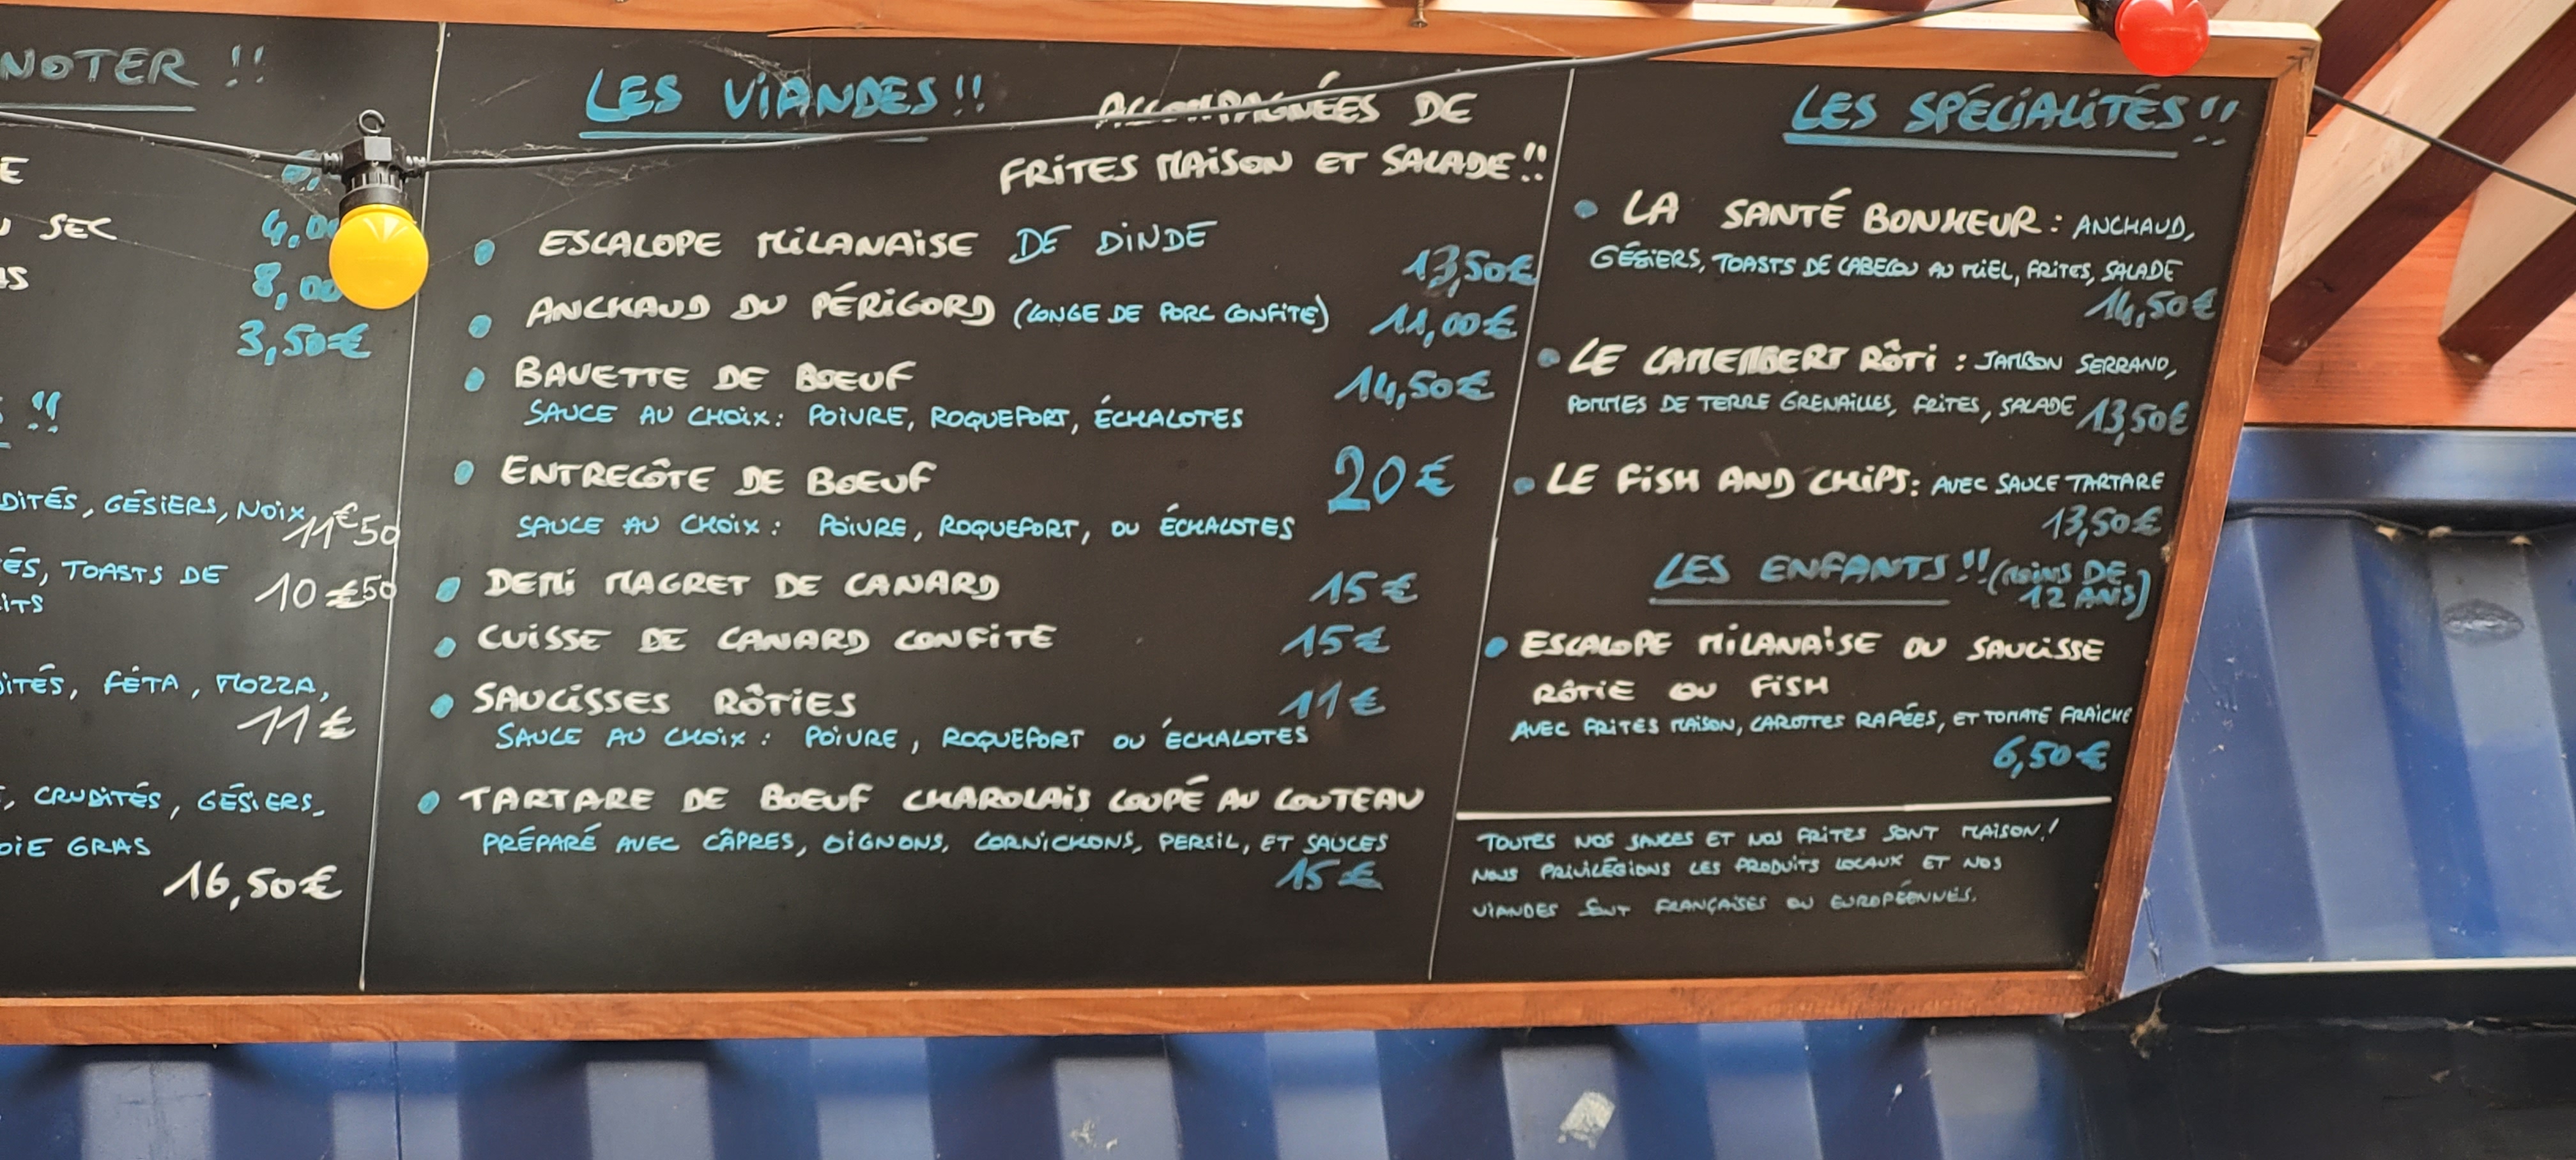 NOTER !!
E
SEC 4,00
8,00
3,50€
!!
DITÉS, GÉSIERS, NOIX,
11€50
ÉS, TOASTS DE
10€50
ITS
ITÉS, FÉTA, MOZZA,
11€
, CRUDITÉS, GÉSIERS,
OIE GRAS
16,50€
LES VIANDES !! ACCOMPAGNÉES DE
FRITES MAISON ET SALADE !!
• ESCALOPE MILANAISE DE DINDE 13,50€
• ANCHAUD DU PÉRIGORD (LONGE DE PORC CONFITE) 11,00€
• BAVETTE DE BOEUF 14,50€
SAUCE AU CHOIX : POIVRE, ROQUEFORT, ÉCHALOTES
• ENTRECÔTE DE BOEUF 20€
SAUCE AU CHOIX : POIVRE, ROQUEFORT, OU ÉCHALOTES
• DEMI MAGRET DE CANARD 15€
• CUISSE DE CANARD CONFITE 15€
• SAUCISSES RÔTIES 11€
SAUCE AU CHOIX : POIVRE, ROQUEFORT OU ÉCHALOTES
• TARTARE DE BOEUF CHAROLAIS COUPÉ AU COUTEAU
PRÉPARÉ AVEC CÂPRES, OIGNONS, CORNICHONS, PERSIL, ET SAUCES
15€
LES SPÉCIALITÉS !!
• LA SANTÉ BONHEUR : ANCHAUD,
GÉSIERS, TOASTS DE CABECOU AU MIEL, FRITES, SALADE
14,50€
• LE CAMEMBERT RÔTI : JAMBON SERRANO,
POMMES DE TERRE GRENAILLES, FRITES, SALADE 13,50€
• LE FISH AND CHIPS : AVEC SAUCE TARTARE
13,50€
LES ENFANTS !! (MOINS DE
12 ANS)
• ESCALOPE MILANAISE OU SAUCISSE
RÔTIE OU FISH
AVEC FRITES MAISON, CAROTTES RAPÉES, ET TOMATE FRAICHE
6,50€
TOUTES NOS SAUCES ET NOS FRITES SONT MAISON !
NOUS PRIVILÉGIONS LES PRODUITS LOCAUX ET NOS
VIANDES SONT FRANÇAISES OU EUROPÉENNES.